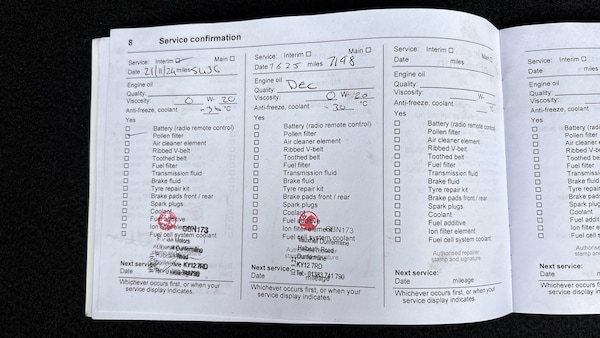 8 Service confirmation
Service: Interim Main
Date 21/11/24 miles 5436
Engine oil
Quality:
Viscosity: 0 W- 20
Anti-freeze, coolant -36 °C
Yes
Battery (radio remote control)
Pollen filter
Air cleaner element
Ribbed V-belt
Toothed belt
Fuel filter
Transmission fluid
Brake fluid
Tyre repair kit
Brake pads front / rear
Spark plugs
Coolant
Fuel additive
Ion filter element
Fuel cell system coolant
GBN173
Next service:
Date
Whichever occurs first, or when your
service display indicates.
Service: Interim Main
Date 7 6 25 miles 7148
Engine oil
Quality: Dec
Viscosity: 0 W- 20
Anti-freeze, coolant -30 °C
Yes
Battery (radio remote control)
Pollen filter
Air cleaner element
Ribbed V-belt
Toothed belt
Fuel filter
Transmission fluid
Brake fluid
Tyre repair kit
Brake pads front / rear
Spark plugs
Coolant
Fuel additive
Ion filter element
Fuel cell system coolant
GBN173
Vauxhall Dunfermline
Halbeath Road
Dunfermline
KY12 7RD
Tel: 01383 741790
Next service:
Date mileage
Whichever occurs first, or when your
service display indicates.
Service: Interim Main
Date miles
Engine oil
Quality:
Viscosity: W-
Anti-freeze, coolant °C
Yes
Battery (radio remote control)
Pollen filter
Air cleaner element
Ribbed V-belt
Toothed belt
Fuel filter
Transmission fluid
Brake fluid
Tyre repair kit
Brake pads front / rear
Spark plugs
Coolant
Fuel additive
Ion filter element
Fuel cell system coolant
Authorised repairer
stamp and signature
Next service:
Date mileage
Whichever occurs first, or when your
service display indicates.
Service:
Date
Engine oil
Quality:
Viscosity:
Anti-freeze,
Yes